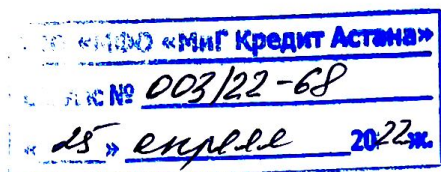 «МФО «МиГ Кредит Астана»
№ 003/22-68
« 25 » апреля 2022ж.